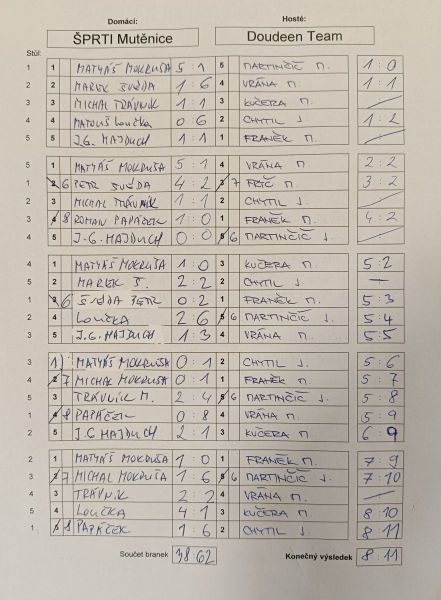 Domácí: Hosté:
ŠPRTI Mutěnice Doudeen Team
Stůl:
1 1 MATYÁŠ MOKRUŠA 5 : 1 5 MARTINČIČ M. 1 : 0
2 2 MAREK SVĚDA 1 : 6 4 VRÁNA M. 1 : 1
3 3 MICHAL TRÁVNÍK 1 : 1 3 KUČERA M.
4 4 MATOUŠ LOUČKA 0 : 6 2 CHYTIL J. 1 : 2
5 5 J.G. MAJDUCH 1 : 1 1 FRANĚK M.
5 1 MATYÁŠ MOKRUŠA 5 : 1 4 VRÁNA M. 2 : 2
1 2 6 PETR SVĚDA 4 : 2 3 7 FRIČ M. 3 : 2
2 3 MICHAL TRÁVNÍK 1 : 1 2 CHYTIL J.
3 4 8 ROMAN PAPÁČEK 1 : 0 1 FRANĚK M. 4 : 2
4 5 J.G. MAJDUCH 0 : 0 5 6 MARTINČIČ J.
4 1 MATYÁŠ MOKRUŠA 1 : 0 3 KUČERA M. 5 : 2
5 2 MAREK S. 2 : 2 2 CHYTIL J. —
1 3 6 SVĚDA PETR 0 : 2 1 FRANĚK M. 5 : 3
2 4 LOUČKA 2 : 6 5 6 MARTINČIČ J. 5 : 4
3 5 J.G. MAJDUCH 1 : 3 4 VRÁNA M. 5 : 5
3 1 MATYÁŠ MOKRUŠA 0 : 1 2 CHYTIL J. 5 : 6
4 2 7 MICHAL MOKRUŠA 0 : 1 1 FRANĚK M. 5 : 7
5 3 TRÁVNÍK M. 2 : 4 5 6 MARTINČIČ J. 5 : 8
1 4 8 PAPÁČEK 0 : 8 4 VRÁNA M. 5 : 9
2 5 J.G MAJDUCH 2 : 1 3 KUČERA M. 6 : 9
2 1 MATYÁŠ MOKRUŠA 1 : 0 1 FRANĚK M. 7 : 9
3 2 7 MICHAL MOKRUŠA 1 : 6 5 6 MARTINČIČ J. 7 : 10
4 3 TRÁVNÍK 2 : 2 4 VRÁNA M. —
5 4 LOUČKA 4 : 1 3 KUČERA M. 8 : 10
1 5 8 PAPÁČEK 1 : 6 2 CHYTIL J. 8 : 11
Součet branek 38:62 Konečný výsledek 8 : 11